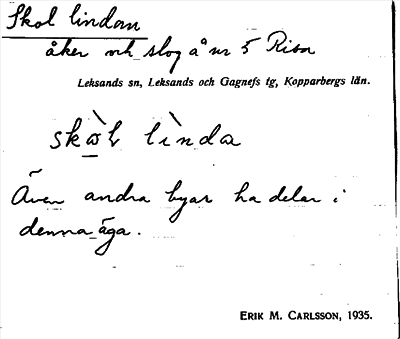 Skol lindan
åker och slog å nr 5 Risa
Leksands sn, Leksands och Gagnefs tg, Kopparbergs län.
skὰl lìnda
Även andra byar ha delar i
denna äga.
ERIK M. CARLSSON, 1935.